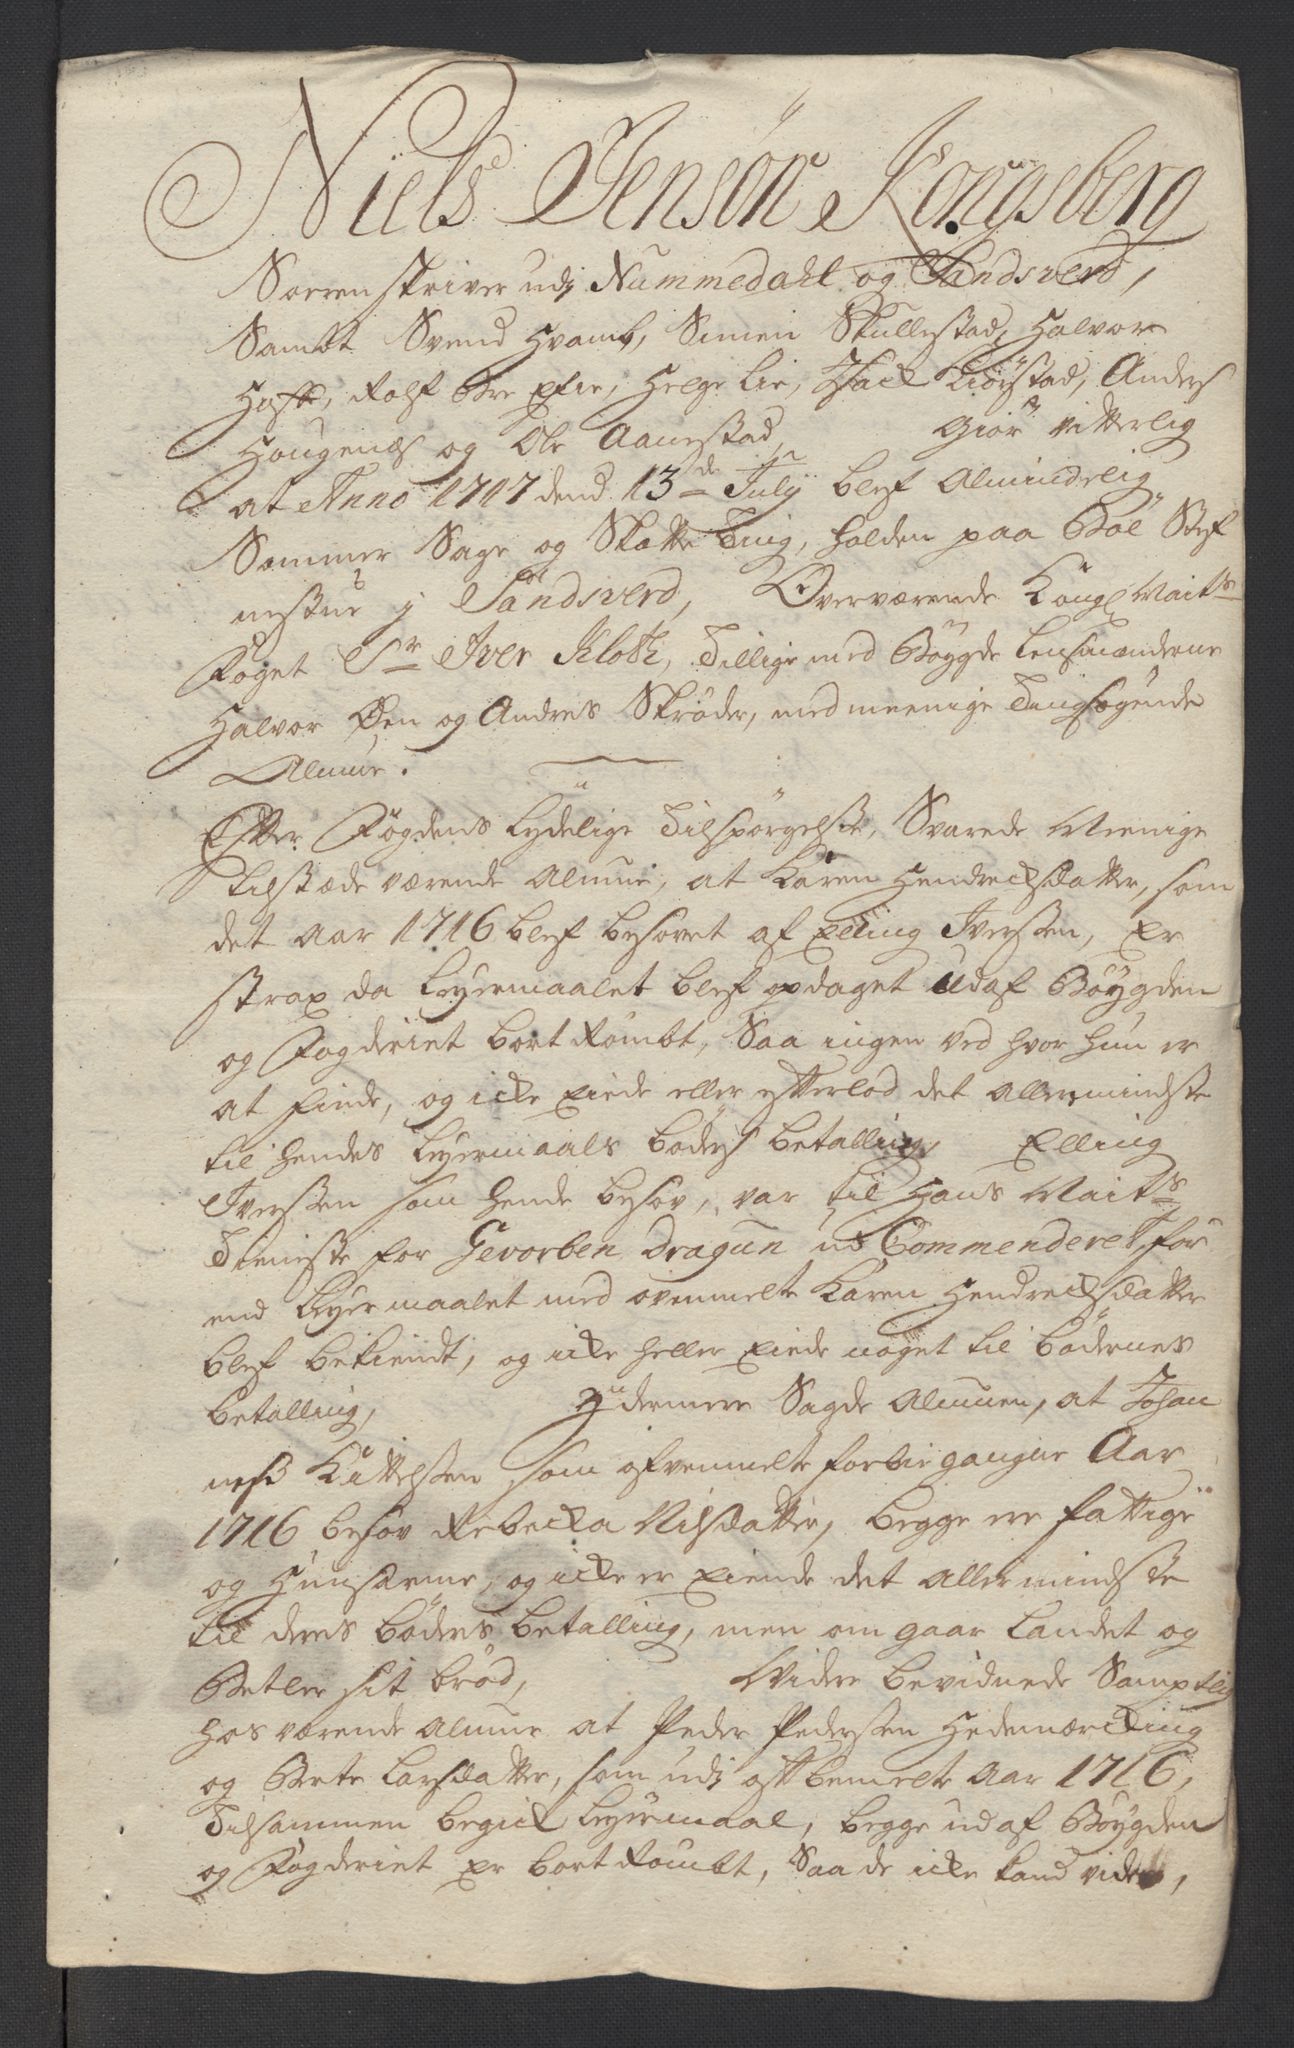 Niels Jensøn Kongsberg
Sorren skriver udj Nummedahl og Sandsverd,
Sambt Svend Hvamb, Simen Skullestad, Halvor
Haff, Rolf Bre Efie, Helge Lie, Isack Kiørstad, Anders
Hougenes og Ole Aanestad, Giør vitterlig
at Anno 1717 dend 13de July blef Almindelig
Sommer Sage og Skatte Ting, holden paa Boe Stef
nestue j Sandsverd, Overværende Kongl Maits
Foget Sr Iver Klotz, Tillige med Bøygde Lensmændene
Halvor Øen og Andres Skrøder, med meenige Tingsøgende
Almue.
Efter Fogdens Lydelige Tilspørgelse, Svarede Meenige
tilstæde værende Almue, at Karen Hendrecksdatter, som
det Aar 1716 blef besovet af Elling Iversen, Er
strax da Leyermaalet blef opdaget udaf Bøygden
og Fogderiet bort Rømbt, Saa ingen ved hvor hun er
at finde, og icke Eiede eller efterlod det Allermindste
til hendes Leyermaals bøders betalling, Elling
Iversen som hende besov, var til Hans Maits
Tieniste for Gevorben Dragun ud Commenderet, før
end Leyermaalet med ovenmelte Karen Hendrecksdatter
blef bekiendt, og icke heller Eiede noget til bødernes
betalling, Ydermere Sagde Almuen, at Johan
nes Kittelsen som ofvenmelte forbigangne Aar
1716 besov Rebecka Nilsdatter, begge ere fattige
og Huusarme, og icke er Eiende det Allermindste
til deres bøders betalling, men om gaar Landet og
Betler sit brød, Videre bevidnede Samptlig
hos værende Almue at Peder Pedersen Hedemarcking
og Berte Larsdatter, som udj oftbemelte Aar 1716,
Tilsammen begick Leyermaal, begge udaf Bøygden
og Fogderiet Er bort Rømbt, Saa de icke kand vides,